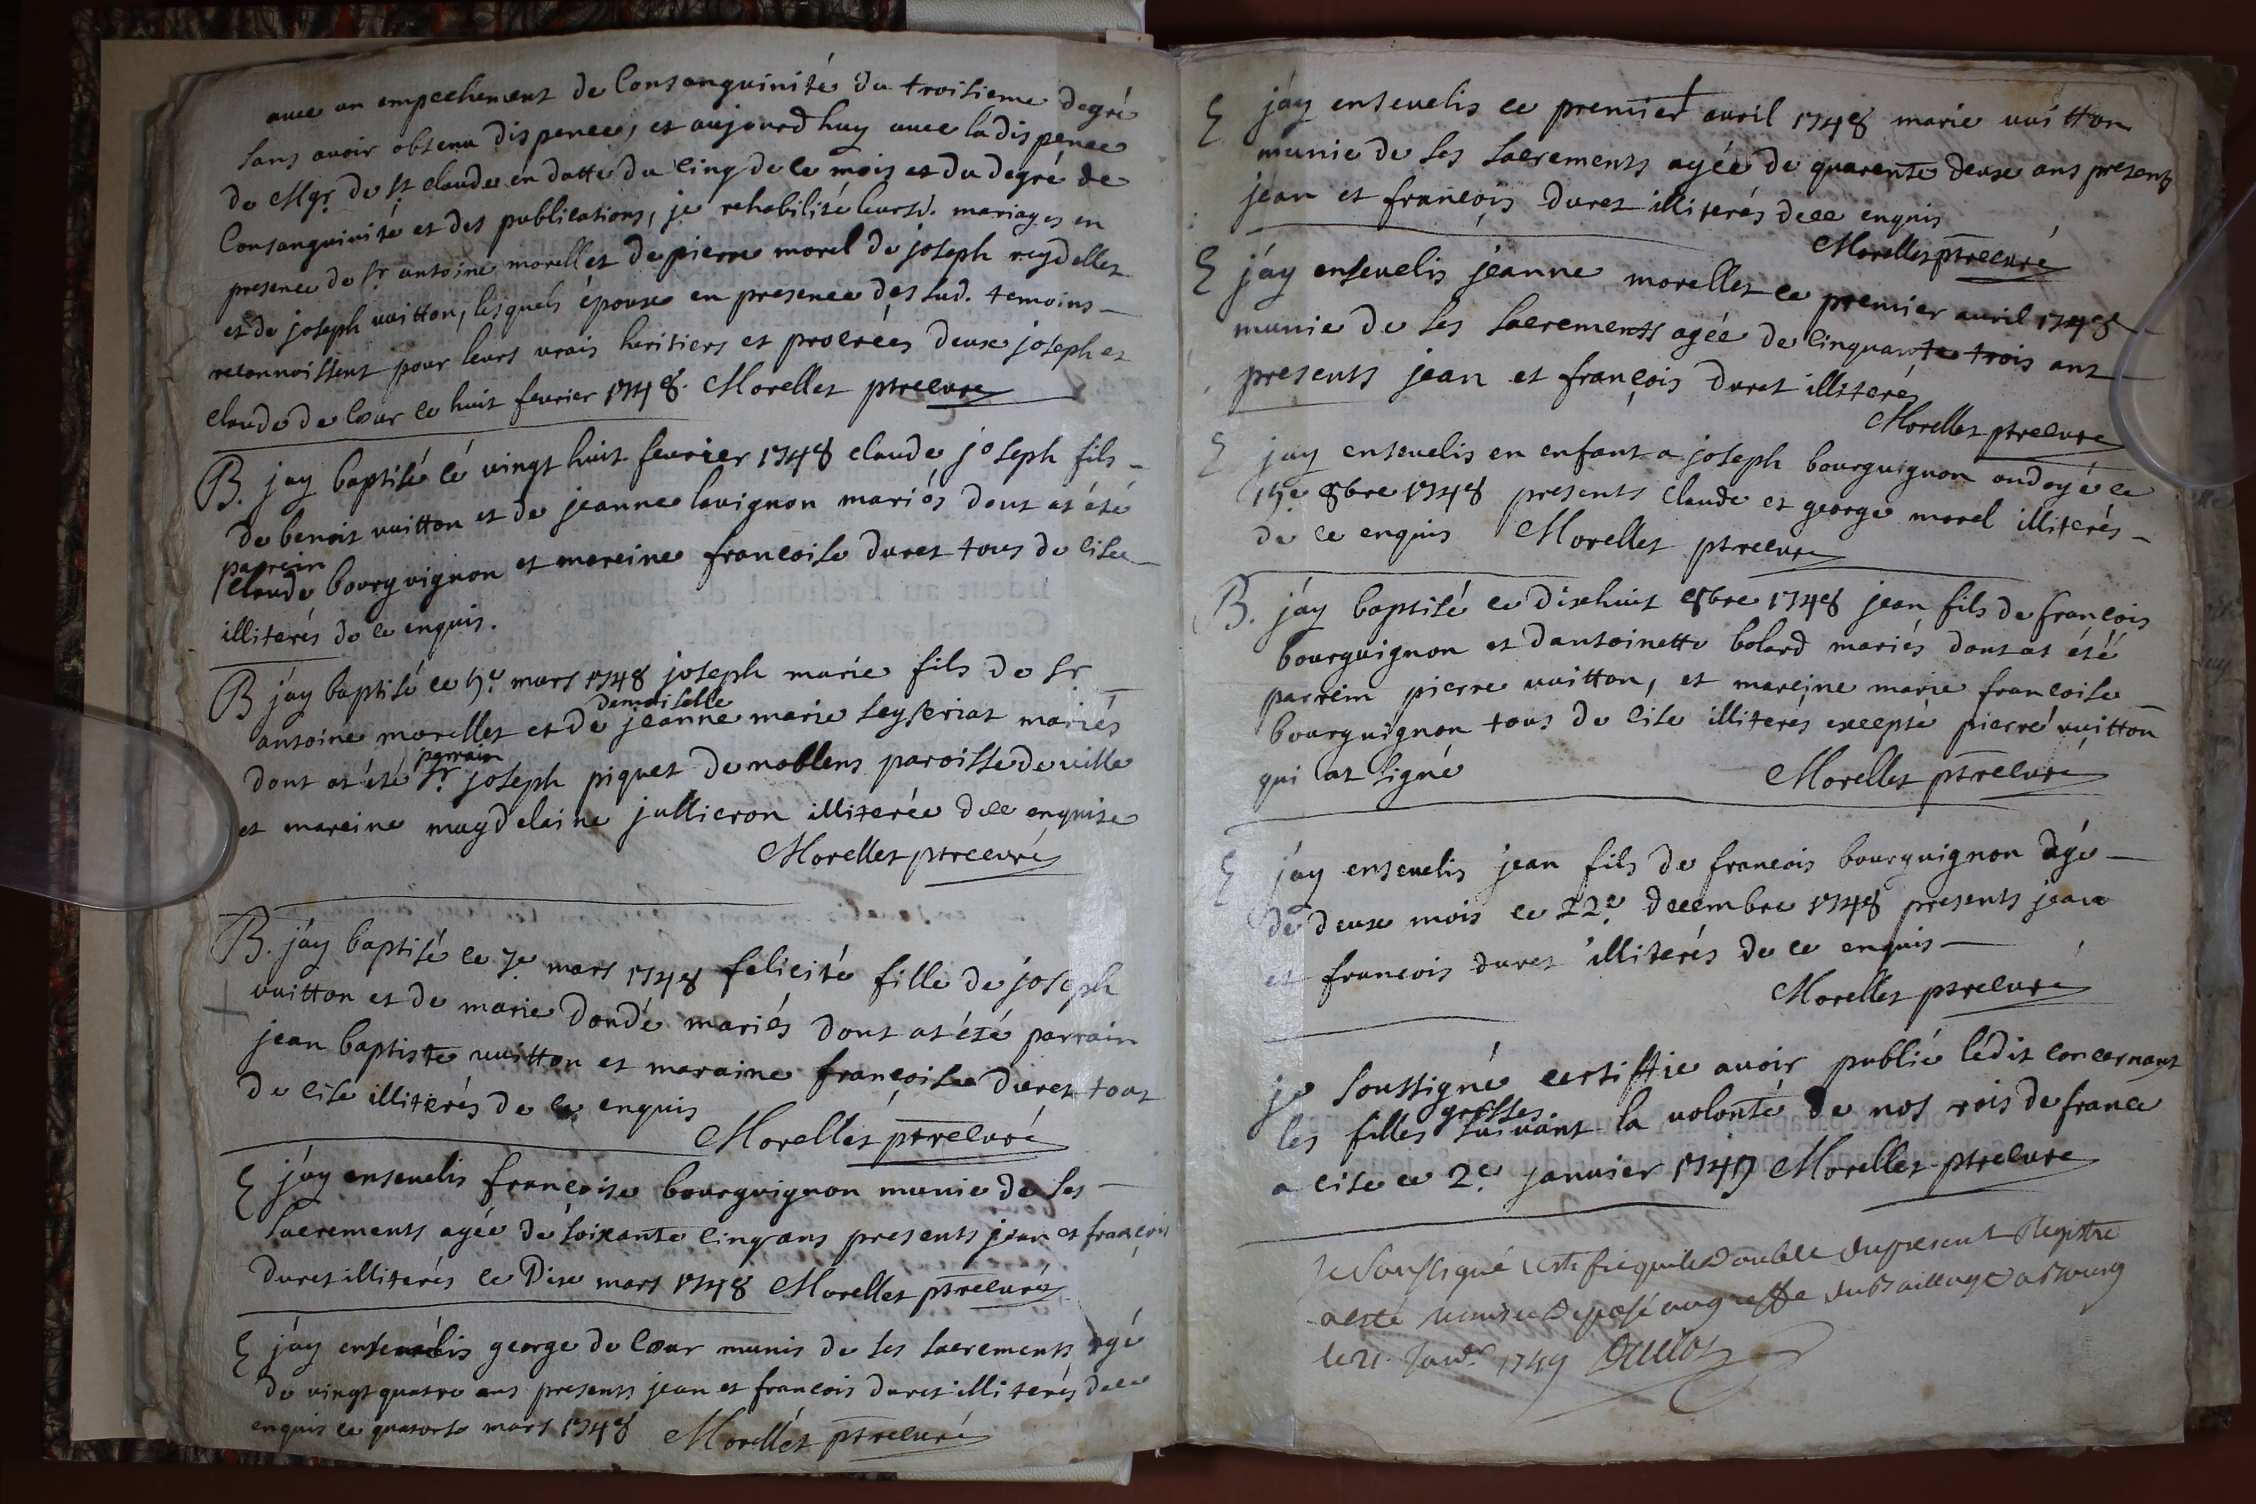 avec un empechement de Consanguinité du troisieme degré
sans avoir obtenu dispence, et aujourdhuy avec la dispence
de Mgr. de St claude en datte du cinq de ce mois et du degré de
Consanguinité et des publications, je rehabilité leursd. mariages en
presence de Sr. antoine morellet de pierre morel de joseph reydellet
et de joseph vuitton, lesquels épouse en presence des sud. temoins
reconnoissent pour leurs vrais heritiers et procréés deux joseph et
claude de lour ce huit fevrier 1748. Morellet ptre curé
B. jay baptisé le vingt huit fevrier 1748 claude joseph fils
de benoit vuitton et de jeanne lavignon mariés dont at été
parrein
Claude bourguignon et mareine francoise duret tous de cise
illiterés de ce enquis.
B jáy baptisé ce 5e. mars 1748 joseph marie fils de Sr
demoiselle
antoine morellet et de jeanne marie seyssriat mariés
parrain
dont at été Sr. joseph piquet de noblens paroisse de ville
et mareine magdelaine jullieron illiterée dece enquise
Morellet ptre curé
B. jáy baptisé ce 7e. mars 1748 felicité fille de joseph
vuitton et de marie dondé mariés dont at été parrain
jean baptiste vuitton et maraine françoise duret tous
de cise illiterés de ce enquis
Morellet ptre curé
E jáy ensevelis francoise bourguignon munie de ses
sacrements agée de soixante cinq ans presents jean et françois
duret illiterés ce dix mars 1748 Morellet ptre curé
E jáy ensevelis george de lour munis de ses sacrements agé
de vingt quatre ans presents jean et francois duret illiterés dece
enquis ce quatorse mars 1748 Morellet ptre curé
E jáy ensevelis ce premier avril 1748 marie vuitton
munie de ses sacrements agée de quarente deux ans presents
jean et françois duret illiterés dece enquis
Morellet ptre curé
E jáy ensevelis jeanne morellet ce premier avril 1748
munie de ses sacrements agée de cinquante trois ans
presents jean et françois duret illiterés
Morellet ptre curé
E jay ensevelis en enfant a joseph bourguignon ondoyé ce
15e 8bre 1748 presents claude et george morel illiterés
de ce enquis Morellet ptre curé
B. jáy baptisé ce dixhuit 8bre 1748 jean fils de francois
bourguignon et dantoinette bolard mariés dont at été
parrein pierre vuitton, et mareine marie francoise
bourguignon tous de cise illiterés excepté pierre vuitton
qui at signé Morellet ptre curé
E jáy ensevelis jean fils de francois bourguignon agé
de deux mois ce 22e. decembre 1748 presents jean
et francois duret illiterés de ce enquis
Morellet ptre curé
je soussigné certiffie avoir publié lédit concernant
grosses
les filles suivant la volonté de nos rois de france
a cise ce 2e. janvier 1749 Morellet ptre curé
Je Soussigné certifie que le double du present Registre
a esté remis et deposé au greffe du Bailliage a Bourg
le 21. Janvr. 1749